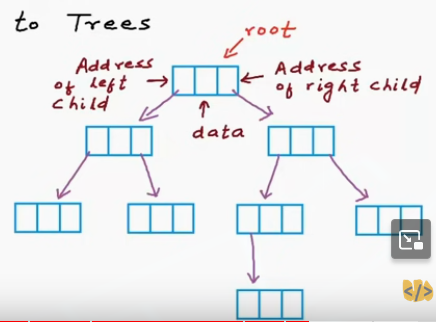 to Trees
root
Address
of Left
child
Address
of right child
data
</>